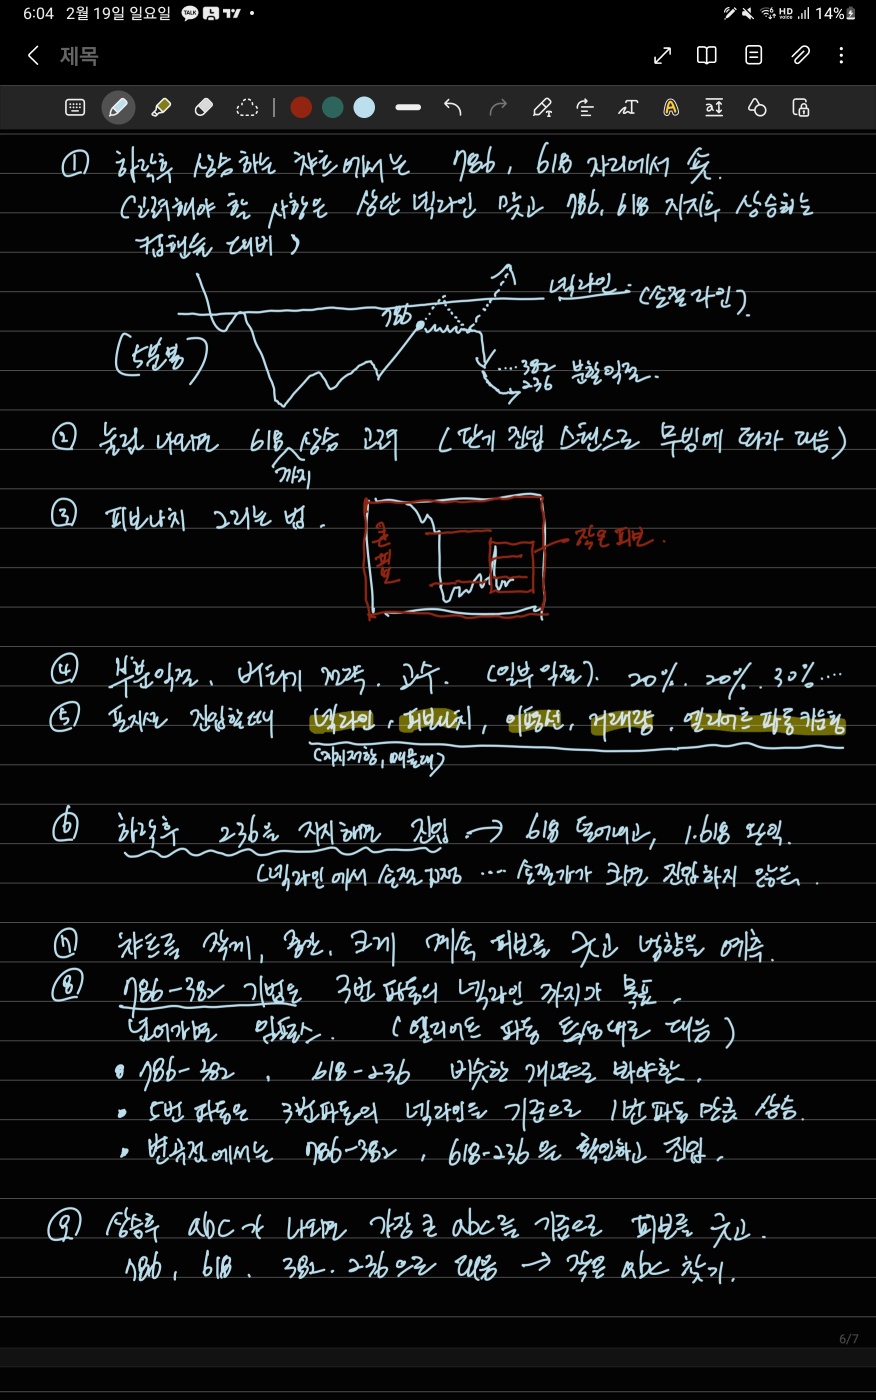 6:04 2월 19일 일요일 TALK
HD voice 14%
제목
① 하락후 상승하는 챠트에서는 786, 618 자리에서 숏.
(고려해야 할 사항은 상단 넥라인 맞고 786, 618 지지후 상승하는
컵핸들 대비)
넥라인. (손절라인).
786
(5분봉)
....382 분할익절..
236
② 눌림 나오면 618 상승 고려 (단기 진입 스탠스로 무빙에 따라 대응)
까지
③ 피보나치 그리는 법.
큰 피보
작은 피보.
④ 부분익절, 버티기 전략. 고수. (일부 익절). 20%. 20%. 30%....
⑤ 포지션 진입할때 넥라인, 피보나치, 이평선, 거래량, 엘리어트 파동 카운팅
(지지저항, 매물대)
⑥ 하락후 236을 지지해면 진입 → 618 덜어내고, 1.618 완익.
(넥라인에서 손절 .... 손절가가 크면 진입하지 않음.
⑦ 챠트를 작게, 중간, 크게 계속 피보를 긋고 방향을 예측.
⑧ 786-382 기법은 3번 파동의 넥라인 까지가 목표.
넘어가면 임펄스. (엘리어트 파동 특성대로 대응)
• 786-382, 618-236 비슷한 개념으로 봐야함.
• 5번 파동은 3번파동의 넥라인을 기준으로 1번 파동 만큼 상승.
• 변곡점에서는 786-382, 618-236을 확인하고 진입.
⑨ 상승후 abc가 나오면 가장 큰 abc를 기준으로 피보를 긋고.
786, 618, 382. 236으로 대응 → 작은 abc 찾기.
6/7